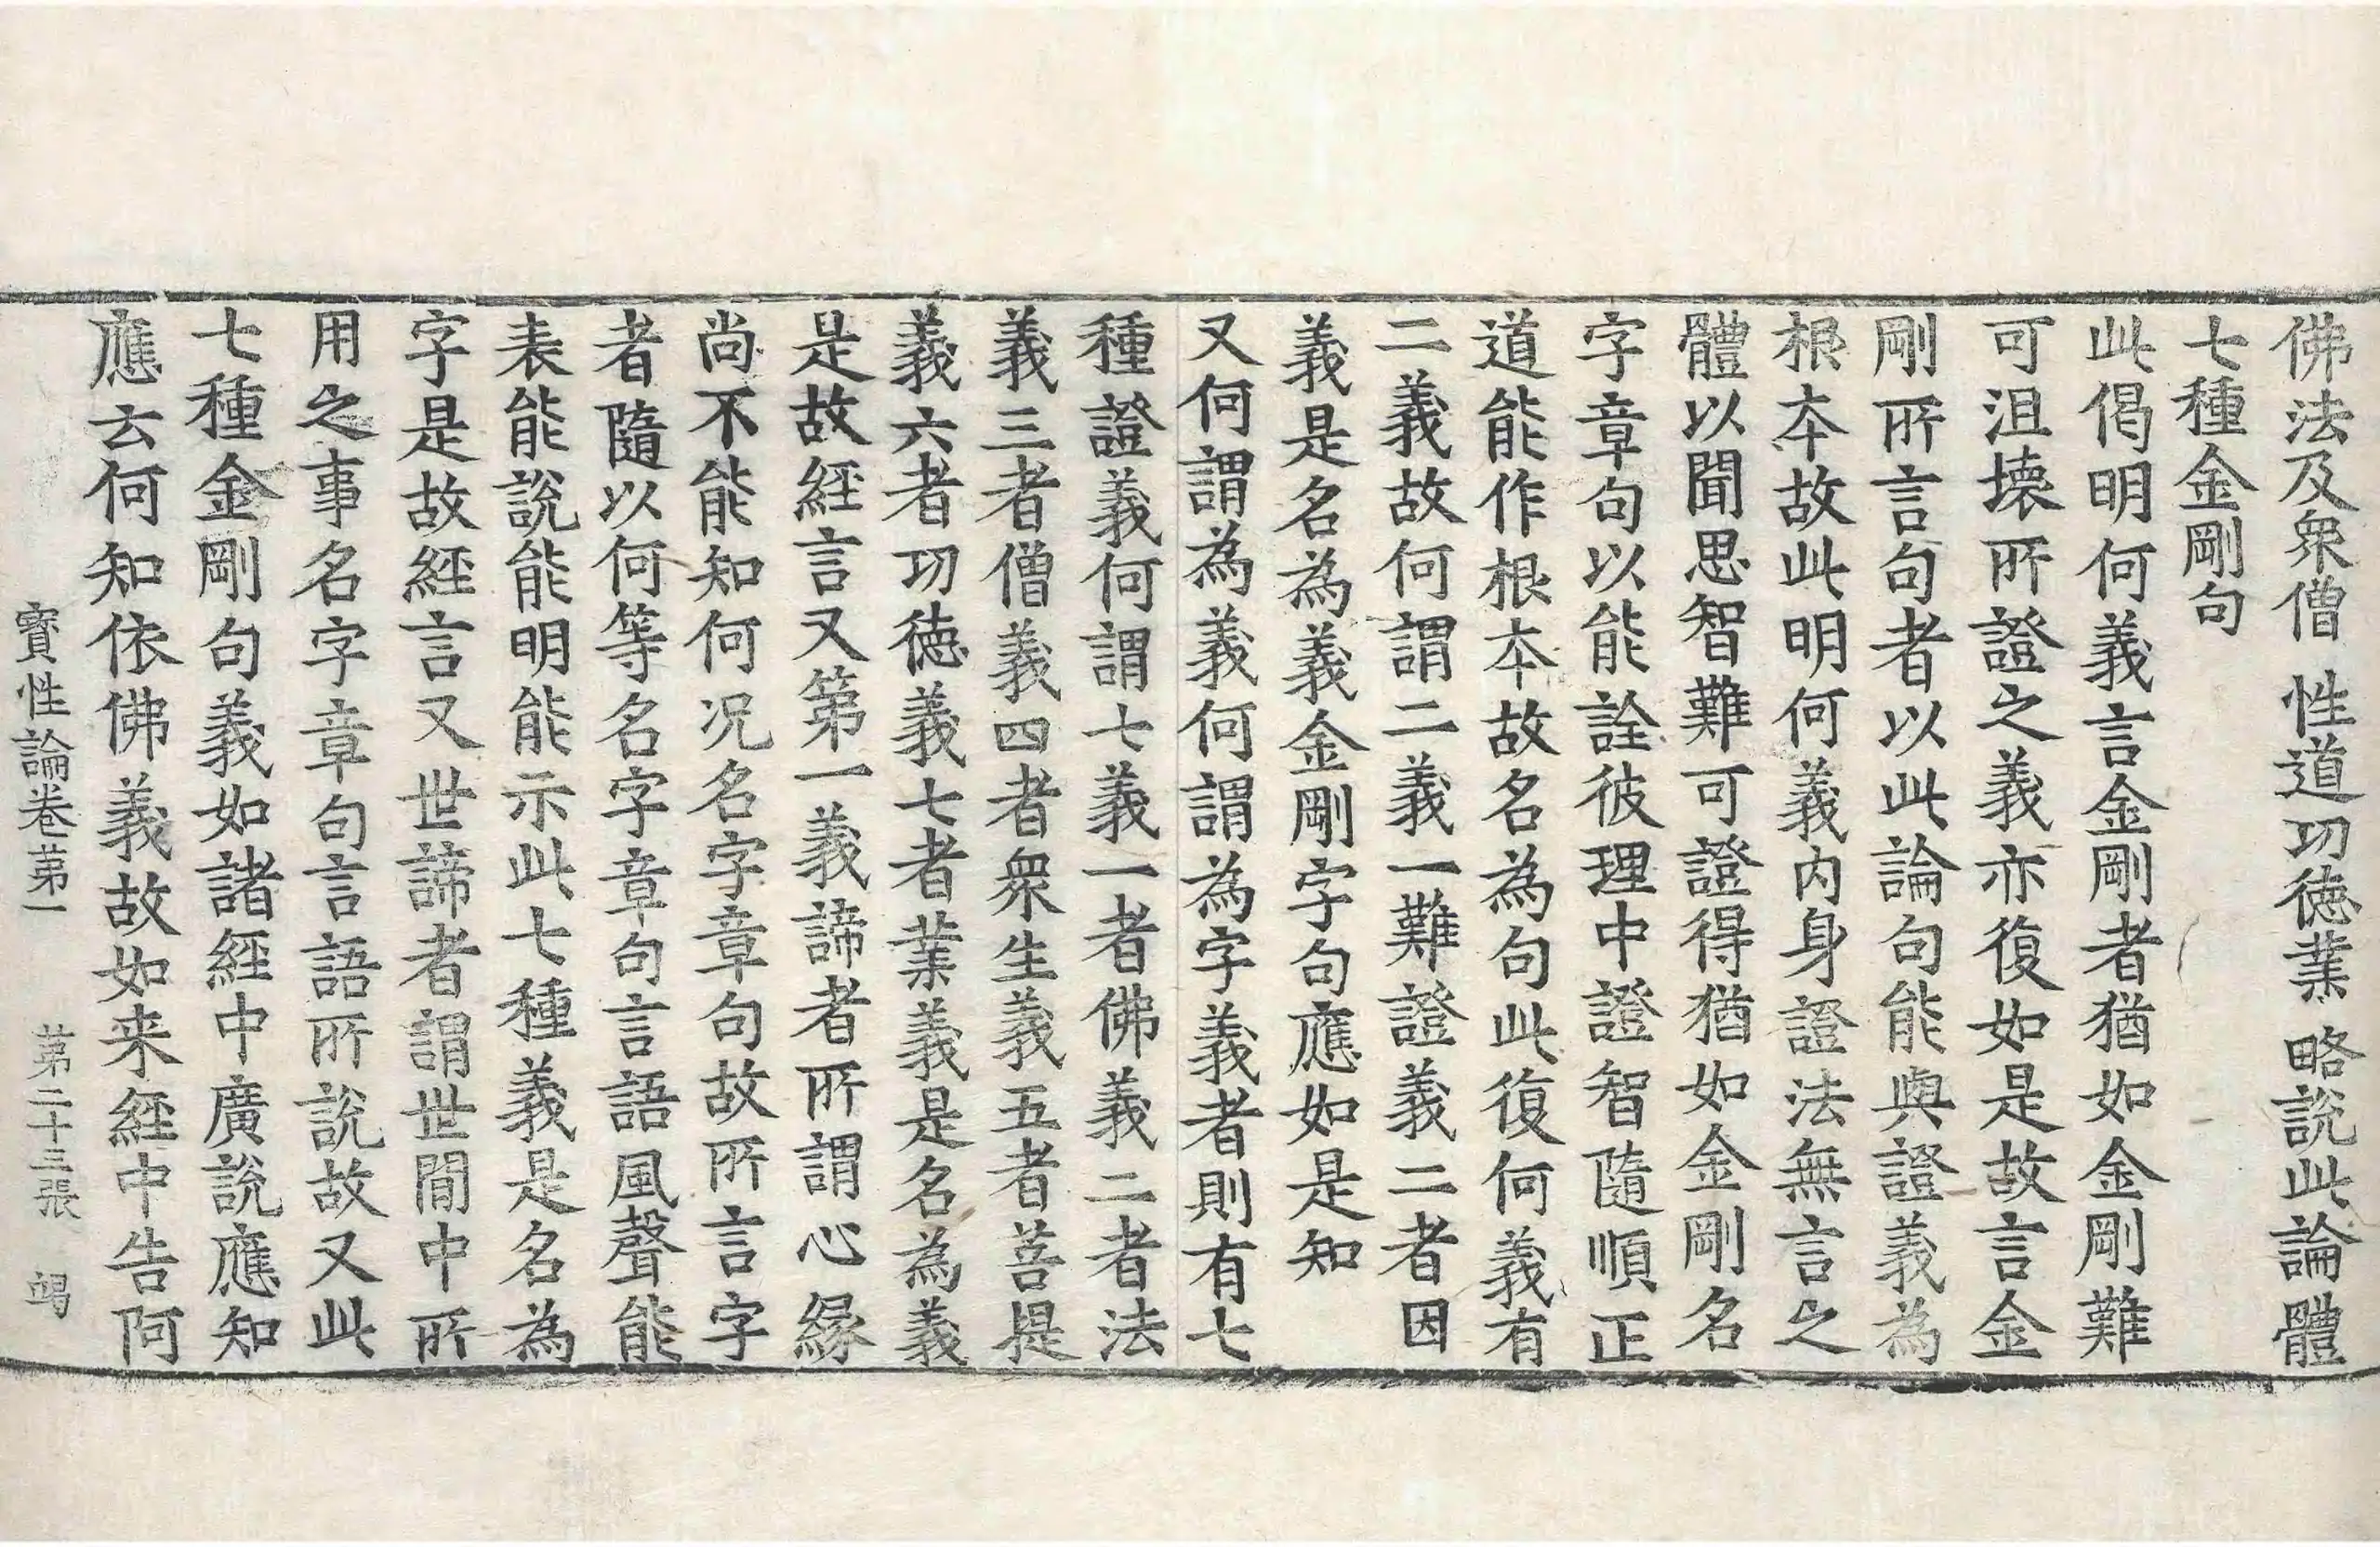 佛法及衆僧 性道功德業 略說此論體
七種金剛句
此偈明何義言金剛者猶如金剛難
可沮壞所證之義亦復如是故言金
剛所言句者以此論句能與證義為
根本故此明何義內身證法無言之
體以聞思智難可證得猶如金剛名
字章句以能詮彼理中證智隨順正
道能作根本故名為句此復何義有
二義故何謂二義一難證義二者因
義是名為義金剛字句應如是知
又何謂為義何謂為字義者則有七
種證義何謂七義一者佛義二者法
義三者僧義四者衆生義五者菩提
義六者功德義七者業義是名為義
是故經言又第一義諦者所謂心緣
尚不能知何況名字章句故所言字
者隨以何等名字章句言語風聲能
表能說能明能示此七種義是名為
字是故經言又世諦者謂世間中所
用之事名字章句言語所說故又此
七種金剛句義如諸經中廣說應知
應云何知依佛義故如来經中告阿
寶性論卷第一 第二十三張 竭